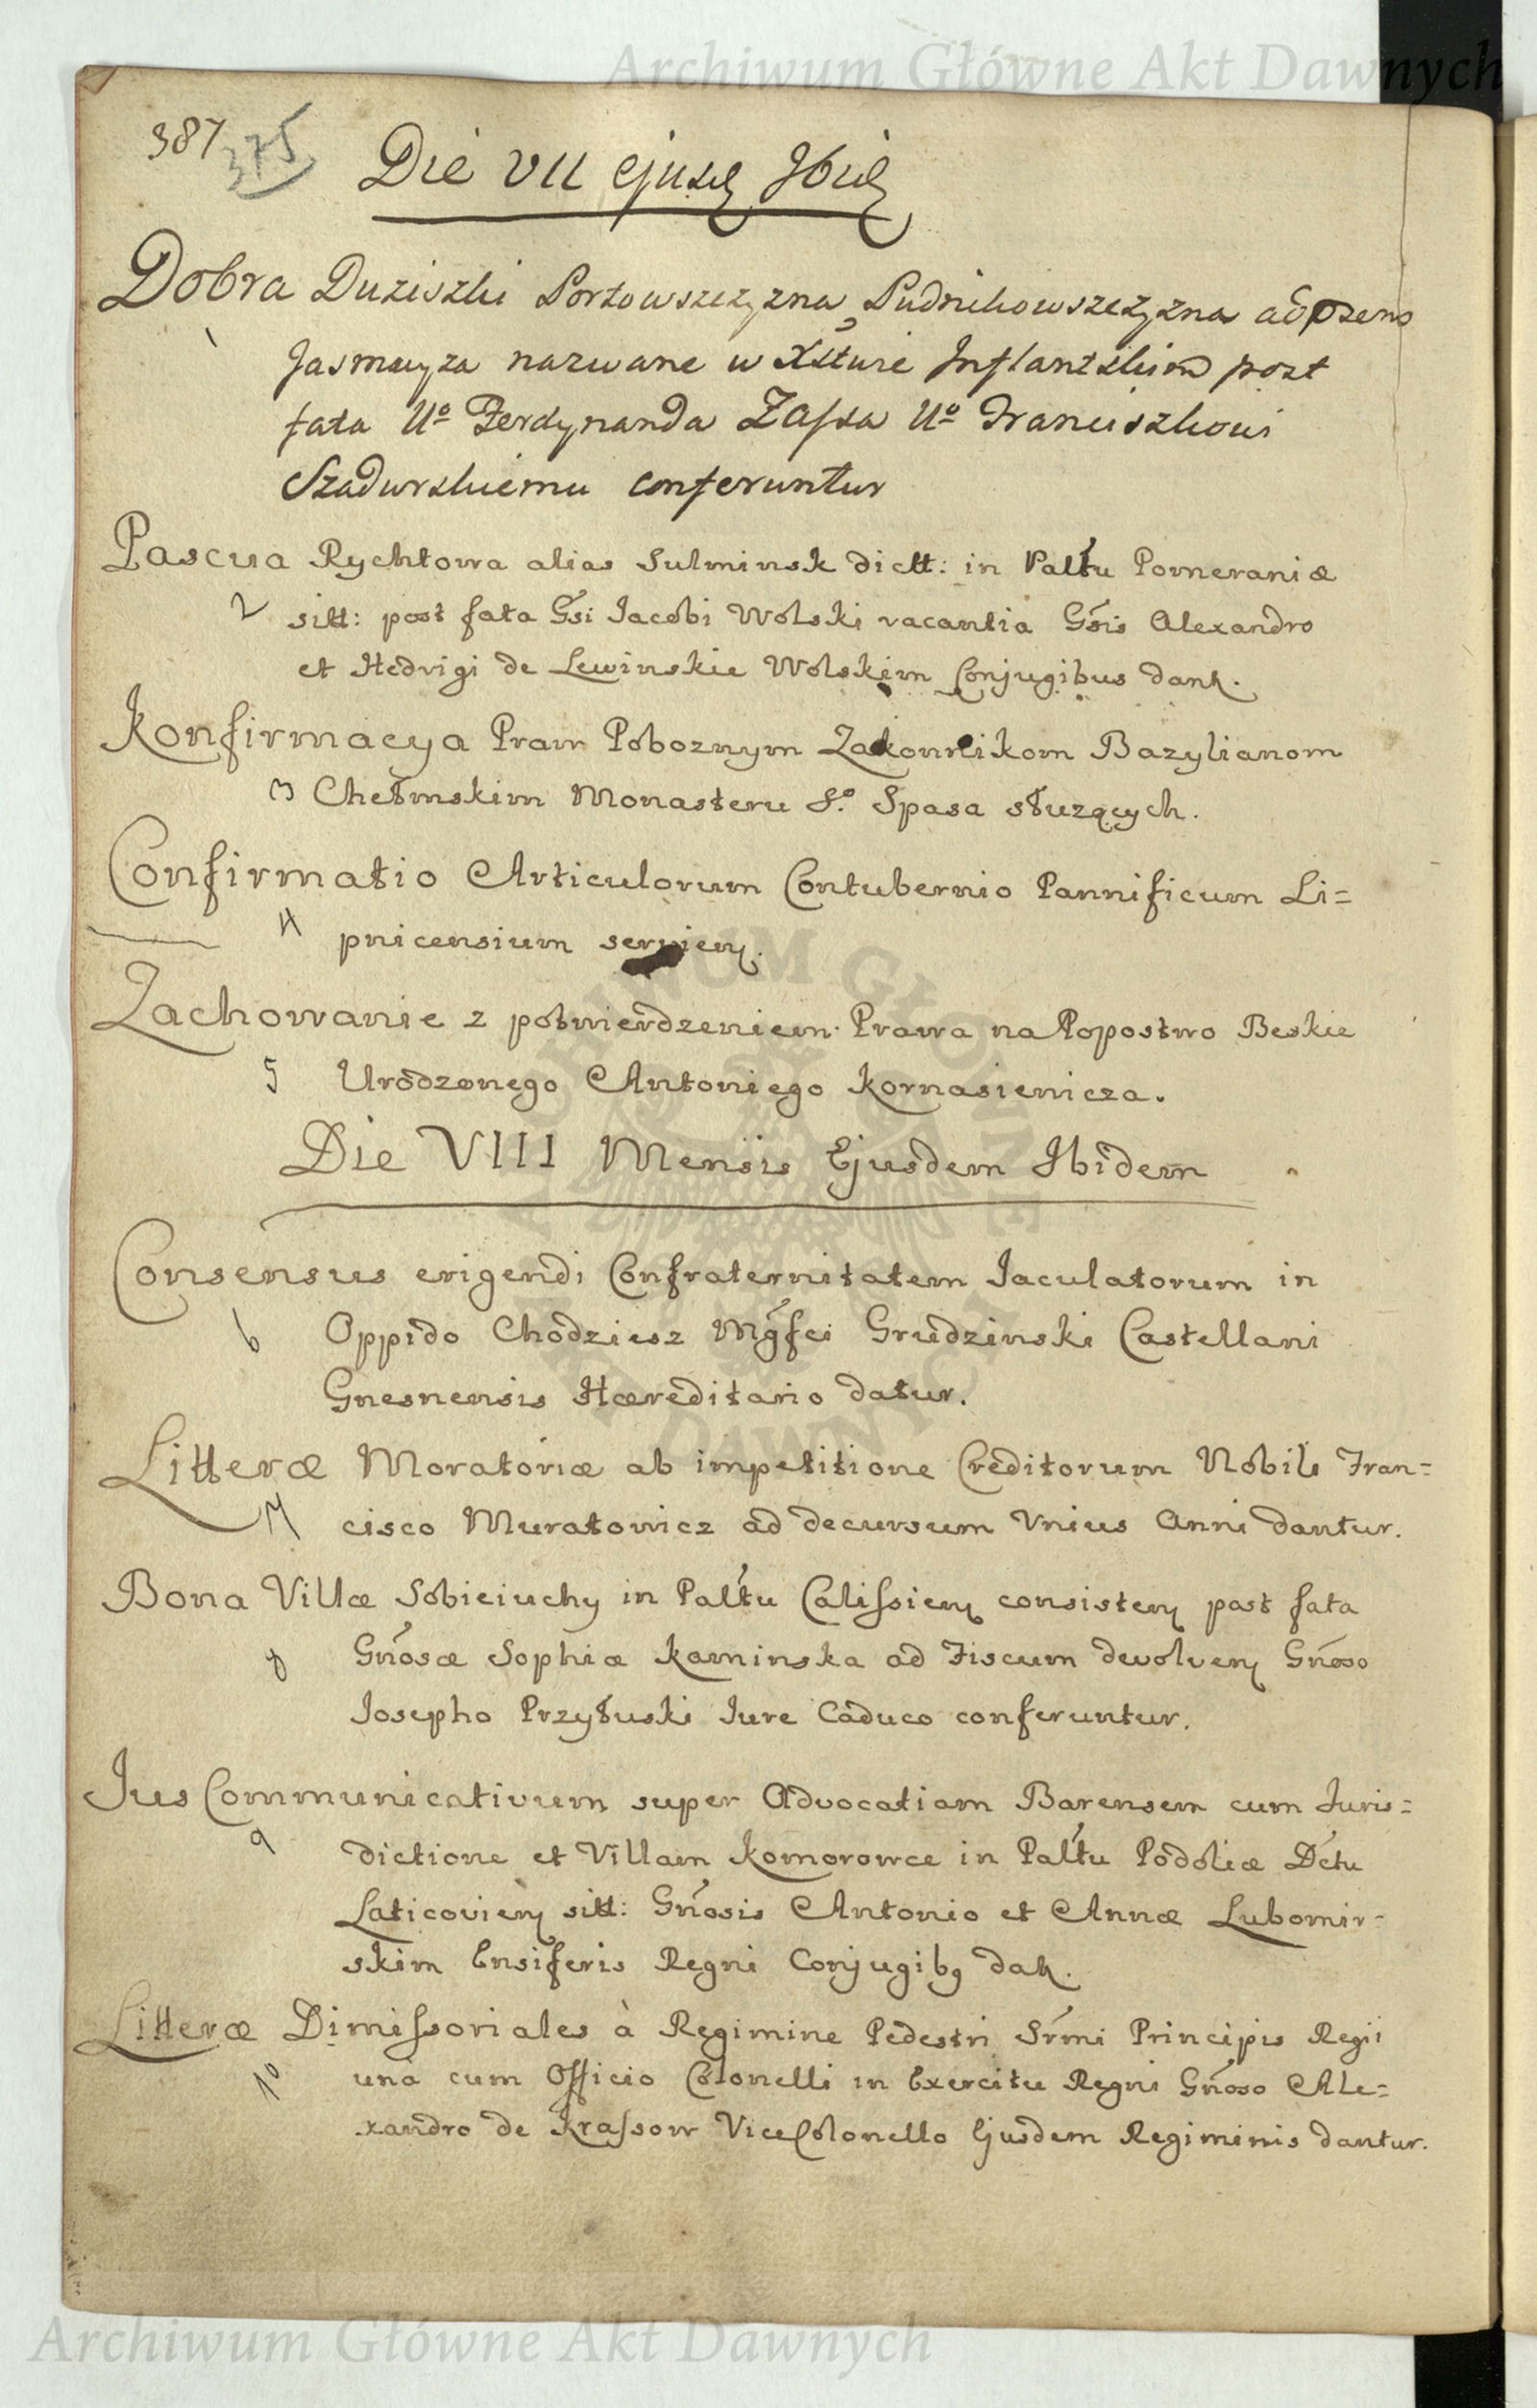 Archiwum Główne Akt Dawnych
387 375
Die VII ejusd Ibid
Dobra Duziszki Portowszczyzna Ludnikowszczyzna
1 nazwane w Xstwie Inflantskim post
fata Uo Ferdynanda Zassa Uo Franciszkowi
Szadurskiemu conferuntur
Pascua Rychtowa alias Sulminsk dictt: in Paltu Pomeraniæ
2 sitt: post fata Gsi Jacobi Wolski vacantia Gsis Alexandro
et Hedvigi de Lewinskie Wolskim Conjugibus dant.
Konfirmacya Praw Poboznym Zakonnikom Bazylianom
3 Chełmskim Monasteru So Spasa służących.
Confirmatio Articulorum Contubernio Pannificum Li=
4 pnicensium servien.
Zachowanie z potwierdzeniem Prawa na Popostwo Beskie
5 Urodzonego Antoniego Kornasiewicza.
Die VIII Mensis Ejusdem Ibidem
Consensus erigendi Confraternitatem Jaculatorum in
6 Oppido Chodziesz Mgfci Grudzinski Castellani
Gnesnensis Hæreditario datur.
Litteræ Moratoriæ ab impetitione Creditorum Nobili Fran=
7 cisco Muratowicz ad decursum Vnius Anni dantur.
Bona Villæ Sobieiuchy in Paltu Calissien consisten post fata
8 Gnosæ Sophiæ Kaminska ad Fiscum devolven Gnoso
Josepho Przyłuski Jure Caduco conferuntur.
Jus Communicativum super Advocatiam Barensem cum Juris=
9 dictione et Villam Komorowce in Paltu Podoliæ Dctu
Laticovien sitt: Gnosis Antonio et Annæ Lubomir=
skim Ensiferis Regni Conjugibg dat.
Litteræ Dimissoriales à Regimine Pedestri Srmi Principis Regii
10 una cum Officio Colonelli in Exercitu Regni Gnoso Ale=
xandro de Krassow ViceColonello Ejusdem Regiminis dantur.
Archiwum Główne Akt Dawnych